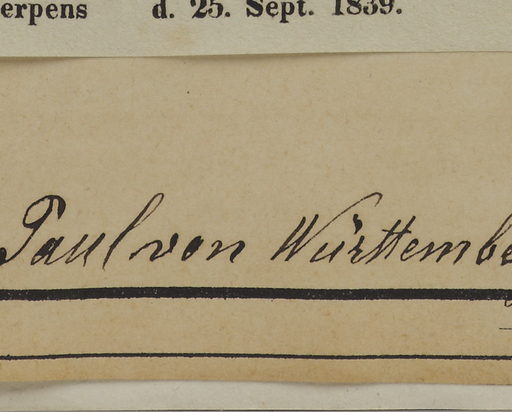 erpens d. 25. Sept. 1839.
Paul von Württembe